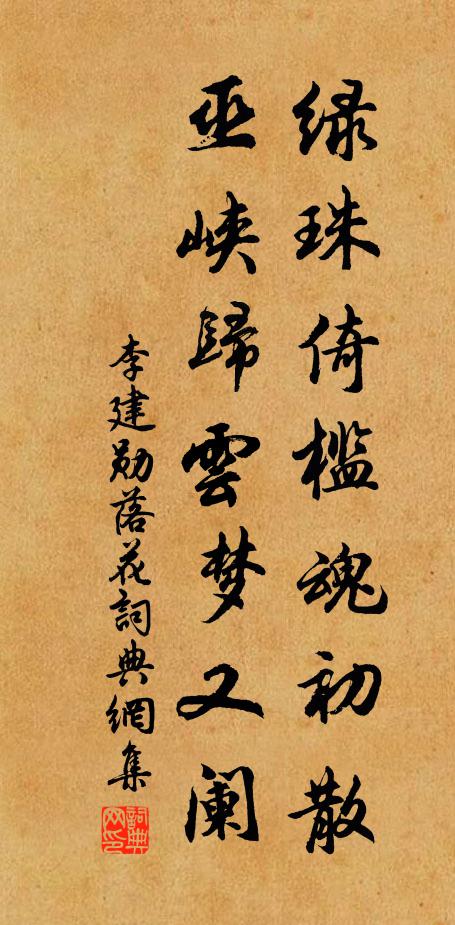 绿珠倚槛魂初散
巫峡歸雲梦又阑
李建勋落花詞典網集
詞典網印